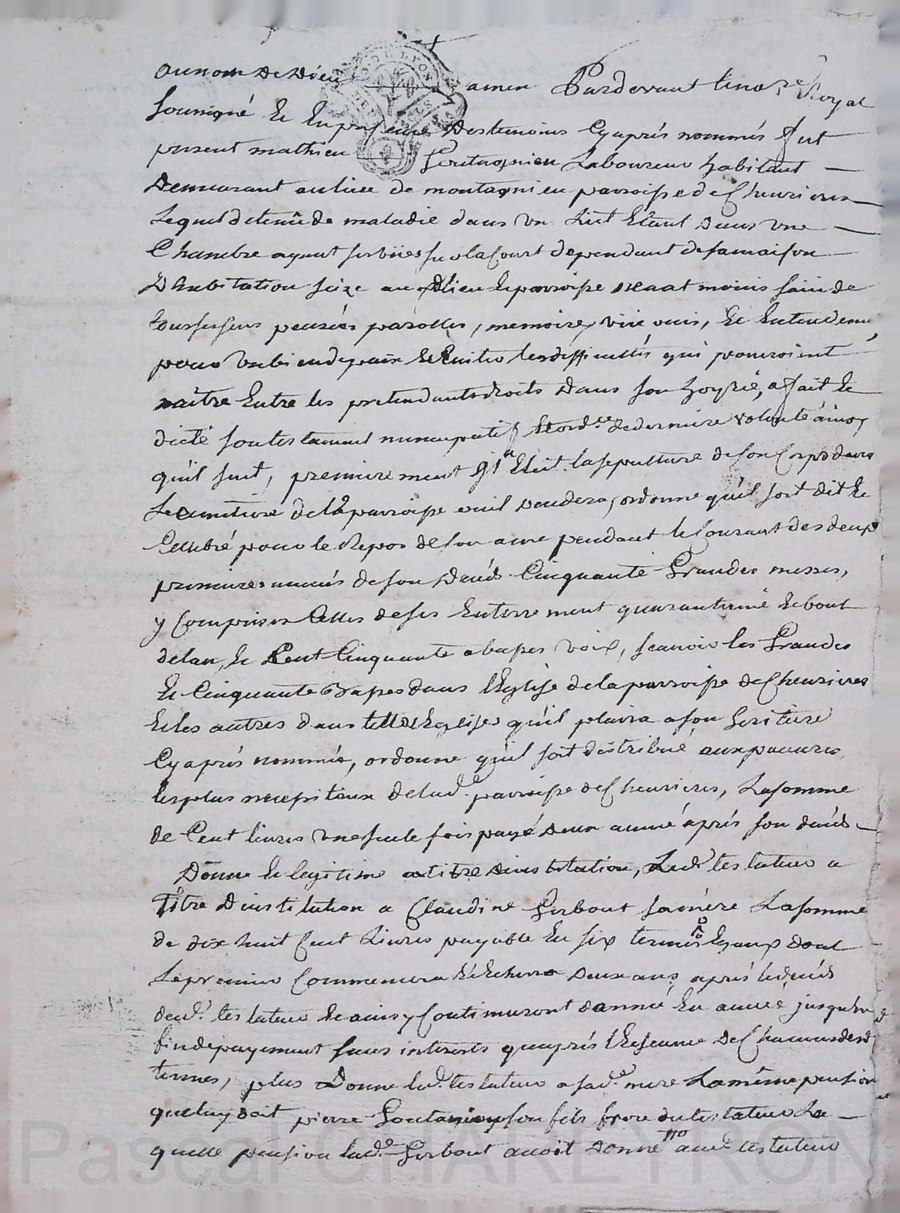 au nom de Dieu amen Pardevant le no.re Royal
soussigné et en presence des temoins cy après nommés fut
present mathieu laboureur habitant
demeurant au lieu de montagnieu parroisse de Chevrieres
lequel detenu de maladie dans un lict etant dans une
Chambre ayant ses vües sur la court dependant de sa maison
D'habitation size aud. lieu et parroisse neant moins sain de
tous ses sens pensées parolles, memoire, vüe ouis, et Entendement
pour un bien de paix et Eviter les difficultés qui pourroient
naître Entre les pretendants droits dans son hoyrie, a fait et
dicté son testament nuncupatif et ord.ce de derniere volonté ainsy
qu'il suit, premierement Elit la sepulture de son Corps dans
le cimetiere de la parroisse ou il decedera, ordonne qu'il soit dit et
Celebré pour le Repos de son ame pendant le Courant des deux
premieres années de son deceds Cinquante Grandes messes,
y Comprises Celles de ses Enterrement quarantaine et bout
de l'an, et Cent Cinquante a basses voix, scavoir les Grandes
et Cinquante Basses dans l'Eglise de la parroisse de Chevrieres
et les autres dans telle Eglise qu'il plaira a son heritiere
Cy après nommée, ordonne qu'il soit distribué aux pauvres
les plus necessiteux de lad.e parroisse de Chevrieres, la somme
de Cent livres une seule fois payé deux année après son deceds
Donne et legitime a titre d'institution, led. testateur a
titre d'institution a Claudine Gerbout sa mère la somme
de dix huit Cent livres payable en six termes Egaux dont
le premier Commencera et Echerra deux ans après le deceds
dud. testateur et ainsy Continueront d'année en année jusqu'en
fin de payement sans interets qu'après l'Echeance de Chacun desd.
termes, plus donne led. testateur a sad.e mere la même pension
que luy doit pierre son fils frere du testateur la
quelle pension lad.e Gerbout avoit donné aud. testateur
Pascal CHARLEYRON